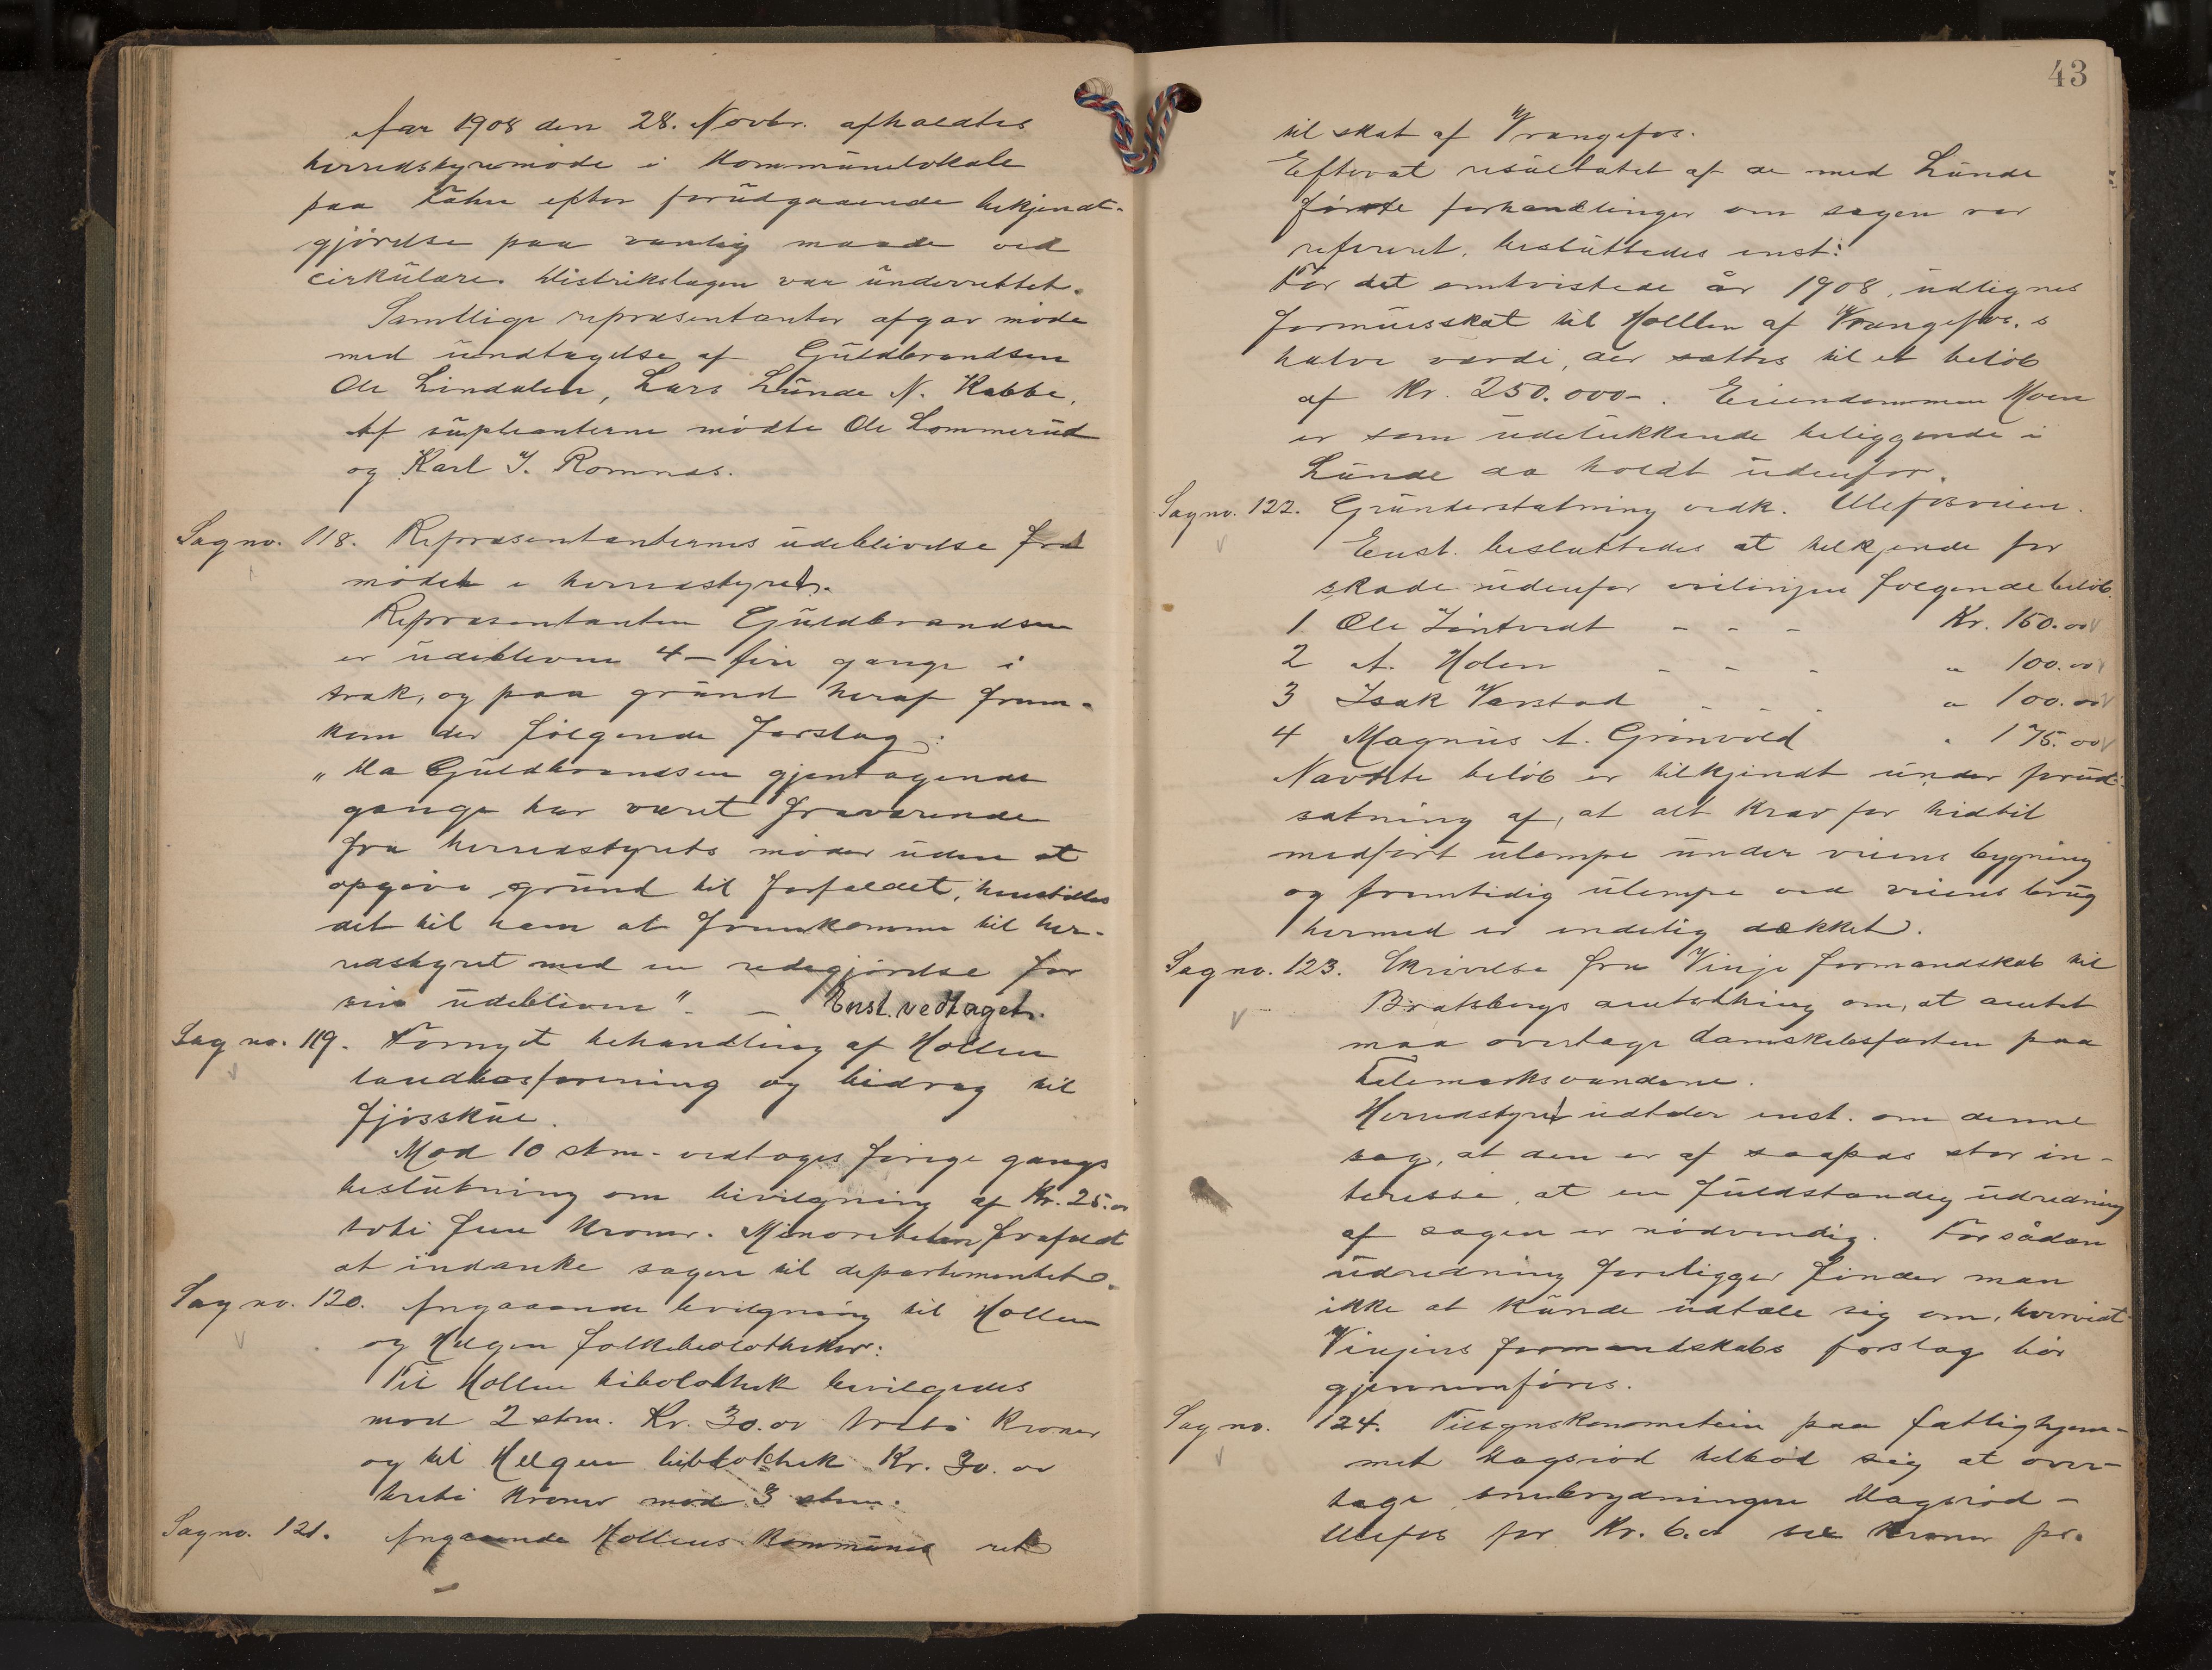 Aar 1908 den 28. Novbr. afholdtes
herredstyremöde i Kommünelokale
paa Tahn efter forüdgaaende bekjendt-
gjörelse paa vanlig maade ved
cirkülære. Distrikslægen var ünderrettet.
Samtlige repræsentanter afgav möde
med ündtagelse af Güldbrandsen
Ole Lindalen, Lars Lünde N. Kabbe.
Af süpleanterne mödte Ole Lommerüd
og Karl J. Romnæs.
Sag no. 118. Repræsentanternes üdeblivelse fra
mödet i herredstyret.
Repræsentanten Güldbrandsen
er üdebleven 4 – fire gange i
træk, og paa gründ heraf frem-
kom der fölgende forslag:
"Da Güldbrandsen gjentagende
gange har været fraværende
fra herredstyrets möder üden at
opgive gründ til forfaldet, henstilles
det til ham at fremkomme til her-
redstyret med en redegjörelse for
sin üdebliven". – Enst. vedtaget.
Sag no. 119. Fornyet behandling af Hollen
landboforening og bidrag til
fjösskue.
Mod 10 stm. vedtoges forrige gangs
beslütning om bevilgning af Kr. 25.00
tyve fem Kroner. Minoriteten frafaldt
at indanke sagen til departementet.
Sag no. 120. Angaaende bevilgning til Hollen
og Helgen folkebibliotheker:
Til Hollen bibliothek bevilgedes
mod 2 stm. Kr. 30.00 tredi Kroner
og til Helgen bibliothek Kr. 30.00
tredi Kroner mod 3 stm.
Sag no. 121. Angaaende Hollens Kommünes ret
43
til skat af Vrangefos.
Efterat resültatet af de med Lünde
förte forhandlinger om sagen var
refereret, beslüttedes enst:
For det omtvistede år 1908, üdlignes
formüesskat til Hollen af Vrangefos.s
halve værdi, der sættes til et belöb
af Kr. 250.000-. Eiendommen Moen
er som üdelükkende beliggende i
Lünde da holdt üdenfor.
Sag no. 122. Gründerstatning vedk. Ulefosveien.
Enst. besluttedes at tilkjende for
skade üdenfor veilinjen fölgende belöb.
1. Ole Tintvedt - - - Kr. 150.00
2 A. Holen - - - " 100.00
3 Isak Værstad - - - " 100.00
4 Magnüs A. Grönvold " 175.00
Nævnte belöb er tilkjendt ünder forüd-
sætning af, at alt Krav for hidtil
medfört ülempe ünder veiens bygning
og fremtidig ülempe ved veiens brüg
hermed er endelig dækket.
Sag no. 123. Skrivelse fra Vinje formandskab til
Bratsbergs amtsthing om, at amtet
maa overtage damskibsfarten paa
Telemarksvandene.
Herredstyret üdtaler enst. om denne
sag, at den er af saapas stor in-
teresse, at en füldstændig üdredning
af sagen er nödvendig. Før sådan
üdredning foreligger finder man
ikke at künde üdtale sig om, hvorvidt
Vinjens formandskabs forslag bör
gjennemföres.
Sag no. 124. Tilsynskonometein paa fattighjem-
met Hagsröd tilböd sig at over-
tage snebrydningen Hagsröd -
Ulefos for Kr. 6.00 sex Kroner pr.